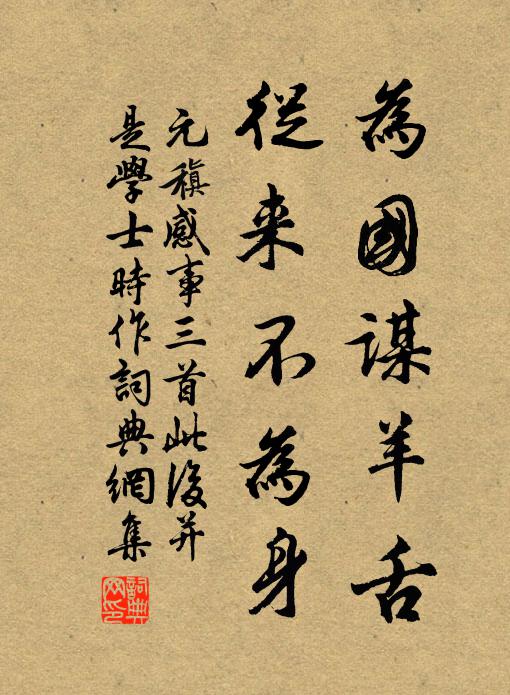 為國謀羊舌
從来不為身
元稹感事三首此後并
是學士時作詞典網集
詞典网印